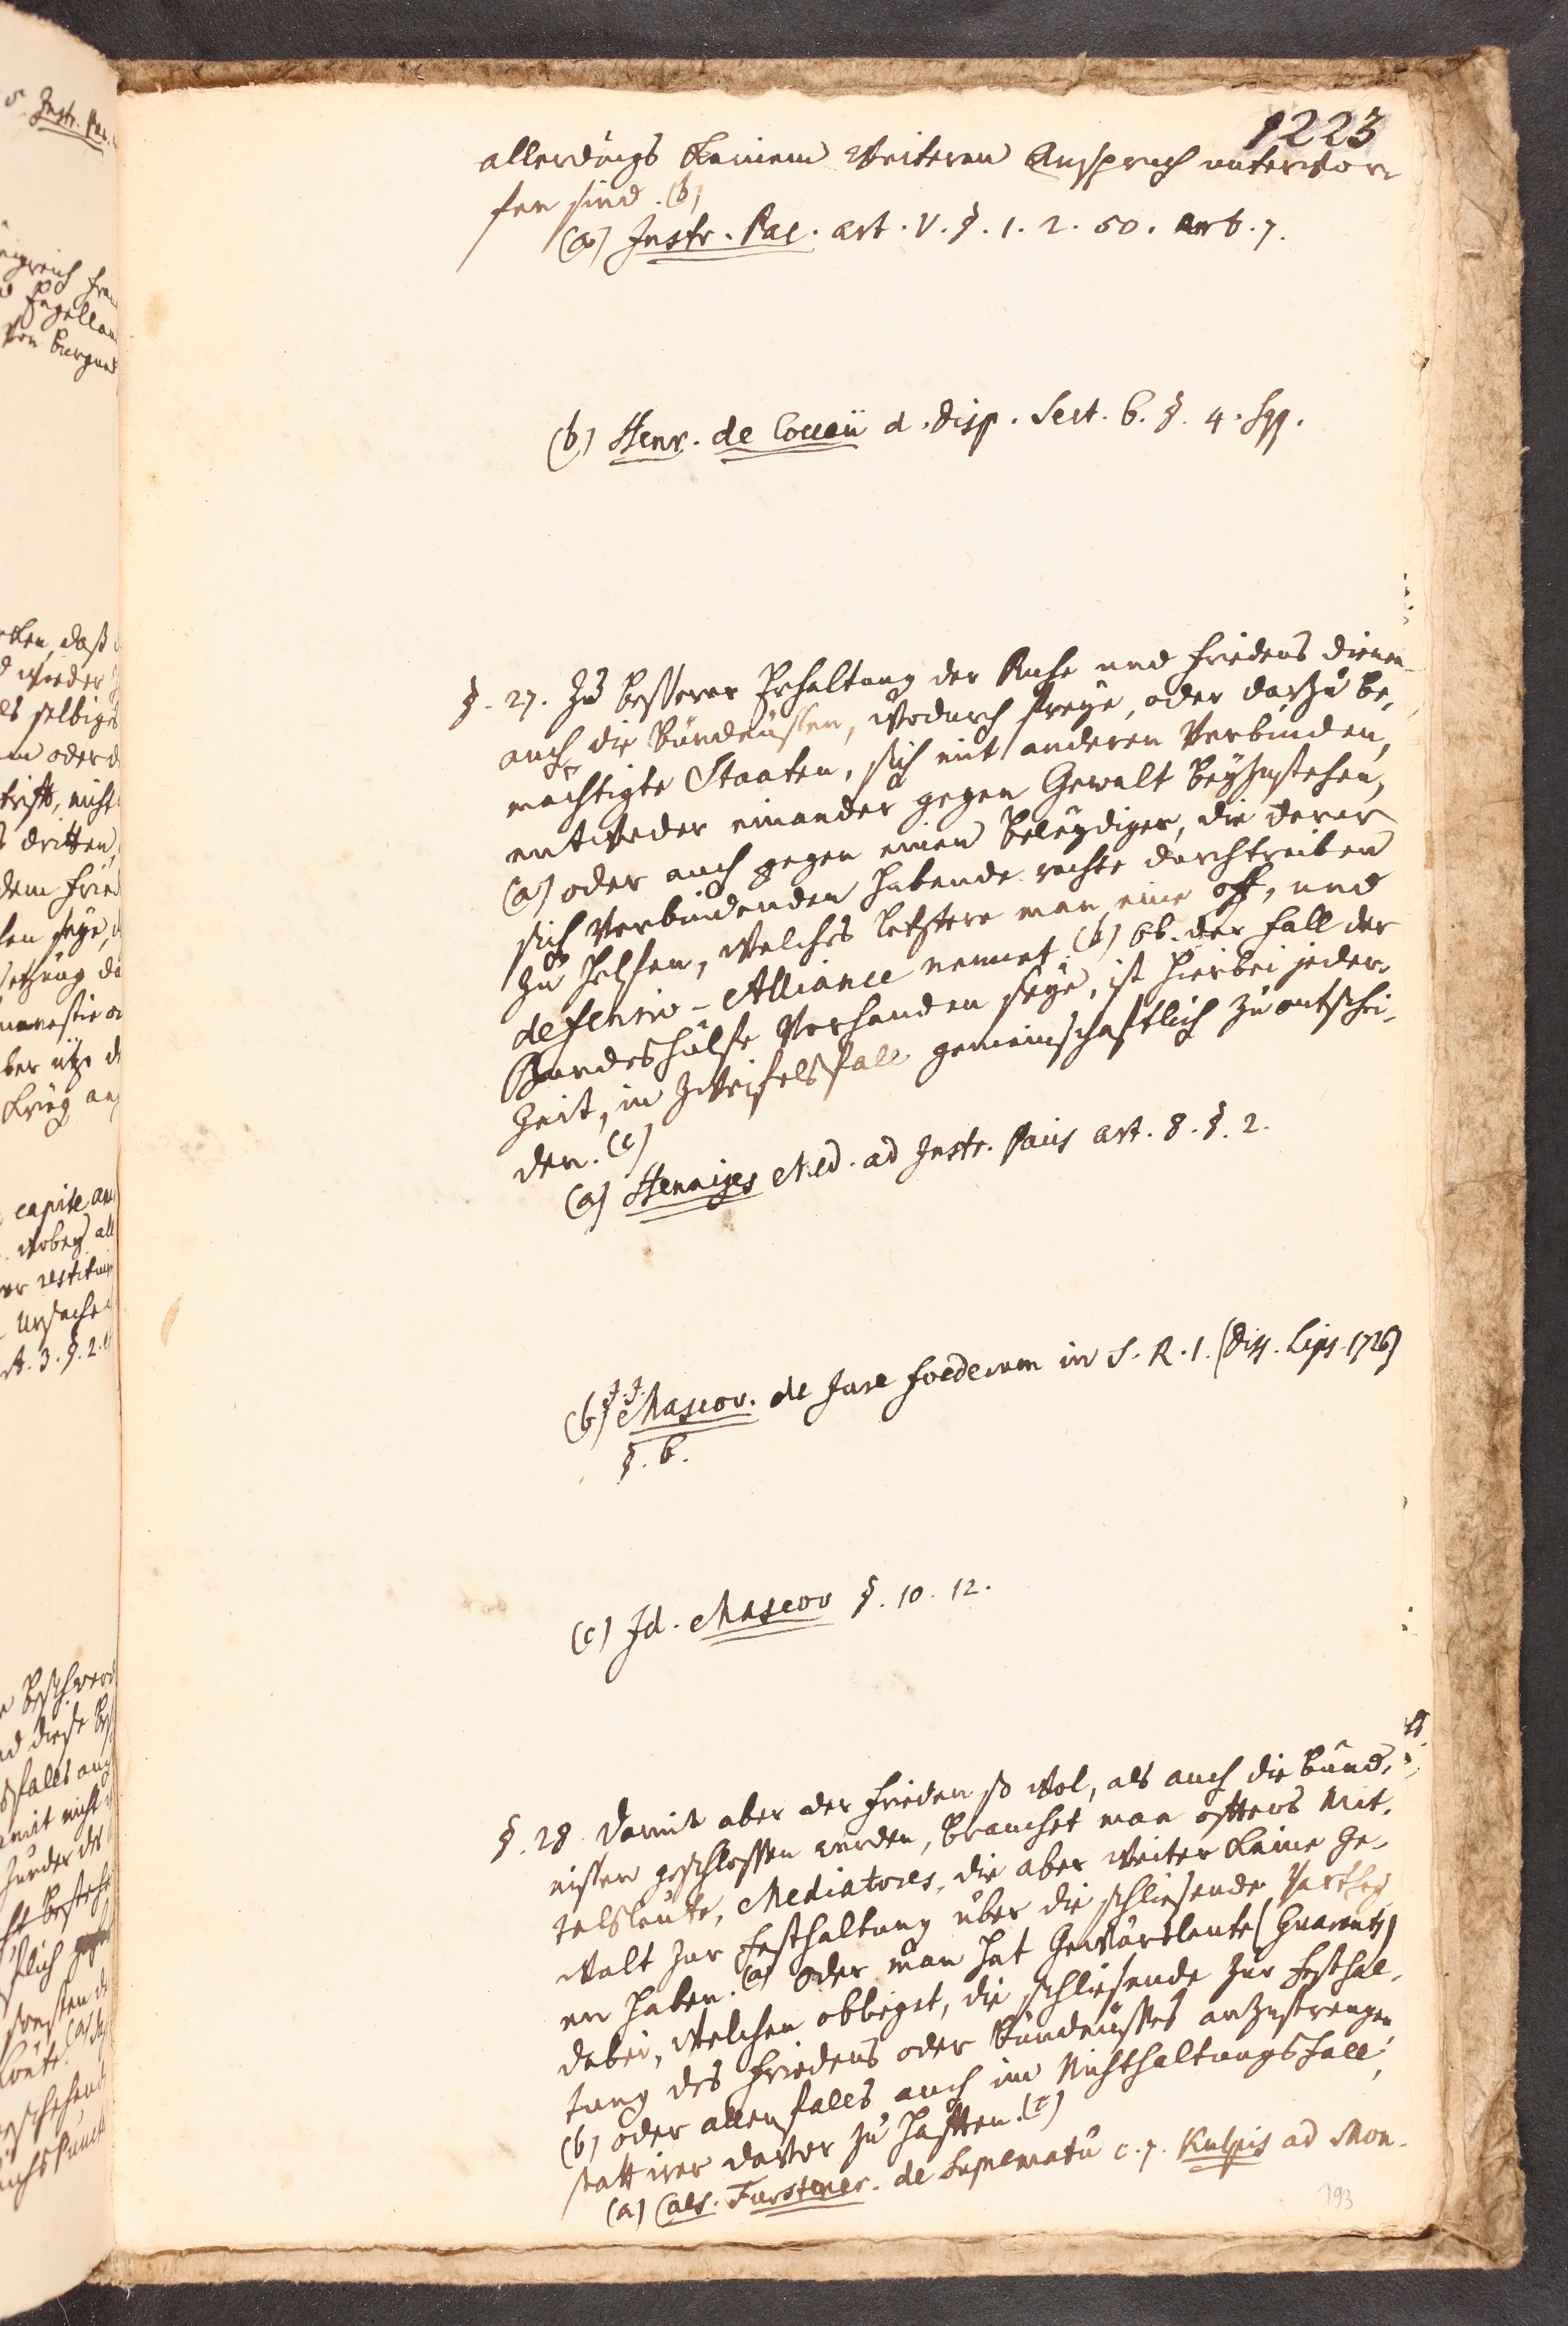 1223
allerdings keinem weiteren Anspruch unterwor-
fen sind. (b)
(a) Instr. Pac. art. V. §. 1. 2. 50. art. 7.
(b) Henr. de Cocceii d. Disp. Sect. 6. §. 4. sqq.
§. 27. Zu besserer Erhaltung der Ruhe und Friedens dienen
auch die Bündnüssen, wodurch freye, oder darzu be-
mächtigte Staaten, sich mit anderen verbinden,
entweder einander gegen Gewalt beyzustehen,
(a) oder auch gegen einen Beleydiger, die derer
sich verbindenden habende rechte durchtreiben
zu helfen, welches letztere man eine off- und
defensiv-Alliance nennet. (b) Ob der Fall der
Bundeshülfe vorhanden seye, ist hierbei jeder-
Zeit, in Zweifelsfall gemeinschaftlich zu entschei-
den. (c)
(a) Henniges Med. ad Instr. Pacis art. 8. §. 2.
(b) J. J. Mascov. de Jure foederum in S. R. I. (Diss. Lips. 1726)
§. 6.
(c) Id. Mascov §. 10. 12.
§. 28 Damit aber der Frieden so wol, als auch die Bünd-
nissen geschlossen werden, brauchet man öfters Mit-
telsleute, Mediatores, die aber weiter keine Ge-
walt zur Festhaltung über die schliesende Parthey
en haben. (a) Oder man hat Gewärsleute (Guarents)
dabei, welchen obliegt, die schliesende zur Festhal-
tung des Friedens oder Bündnüsses anzustrengen
(b) oder allenfalls auch im Nichthaltungsfall,
statt irer davor zu haften. (c)
(a) Caes. Furstener. de Suprematu c. 7. Kulpis ad Mon-
193